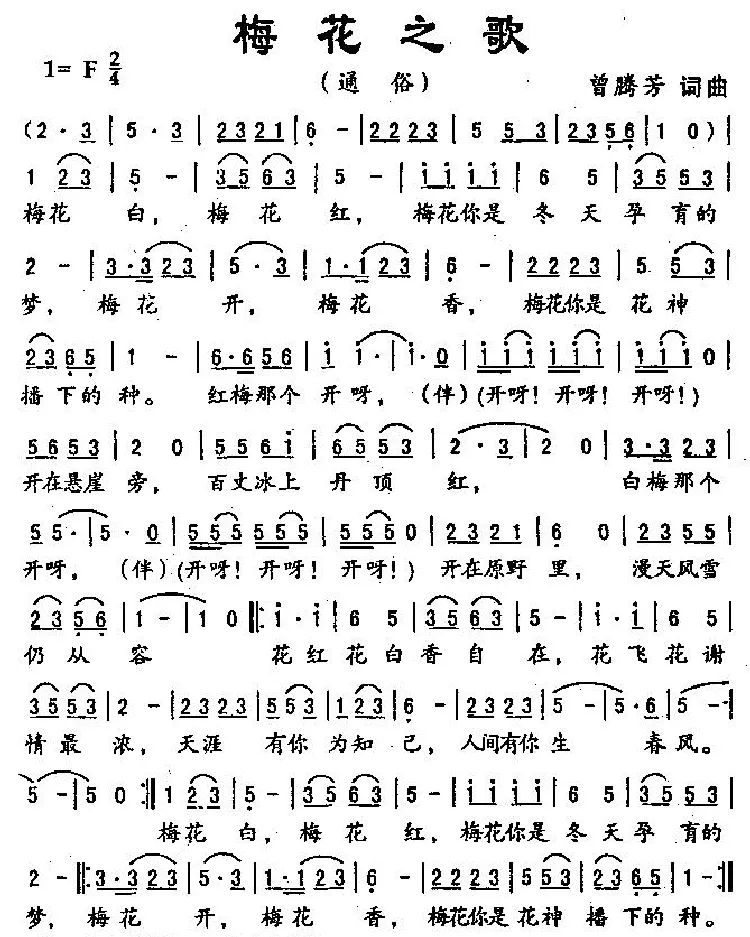 梅花之歌
1= F 2/4
（通俗）
曾腾芳 词曲
(2·3 | 5·3 | 2321 | 6 - | 2223 | 5 53 | 2356 | 1 0) |
1 23 | 5 - | 35 63 | 5 - | iiii | 6 5 | 3553 |
梅花 白， 梅花 红， 梅花你是 冬天孕育的
2 - | 3·323 | 5·3 | 1·123 | 6 - | 2223 | 5 53 |
梦， 梅花 开， 梅花 香， 梅花你是 花神
2365 | 1 - | 6·656 | i i· | i·0 | iii iii | iii 0 |
播下的种。 红梅那个 开呀， （伴）(开呀！开呀！开呀！)
5653 | 2 0 | 556i | 6553 | 2·3 | 2 0 | 3·323 |
开在悬崖 旁， 百丈冰上 丹顶 红， 白梅那个
55· | 5·0 | 555 555 | 5550 | 2321 | 6 0 | 2355 |
开呀， （伴）(开呀！开呀！开呀！) 开在原野 里， 漫天风雪
2356 | 1 - | 1 0 |: i·i | 6 5 | 3563 | 5 - | i·i | 6 5 |
仍从容 花红花白香自 在，花飞花谢
3553 | 2 - | 2323 | 553 | 123 | 6 - | 2223 | 5 - | 5·6 | 5 - |
情最浓， 天涯 有你 为知 己， 人间有你生 春风。
5 - | 5 0 :| 1 23 | 5 - | 3563 | 5 - | iiii | 6 5 | 3553 |
梅花 白， 梅花 红， 梅花你是 冬天孕 育的
2 - |: 3·323 | 5·3 | 1·123 | 6 - | 2223 | 553 | 2365 | 1 - :|
梦， 梅花 开， 梅花 香， 梅花你是花神 播下的种。